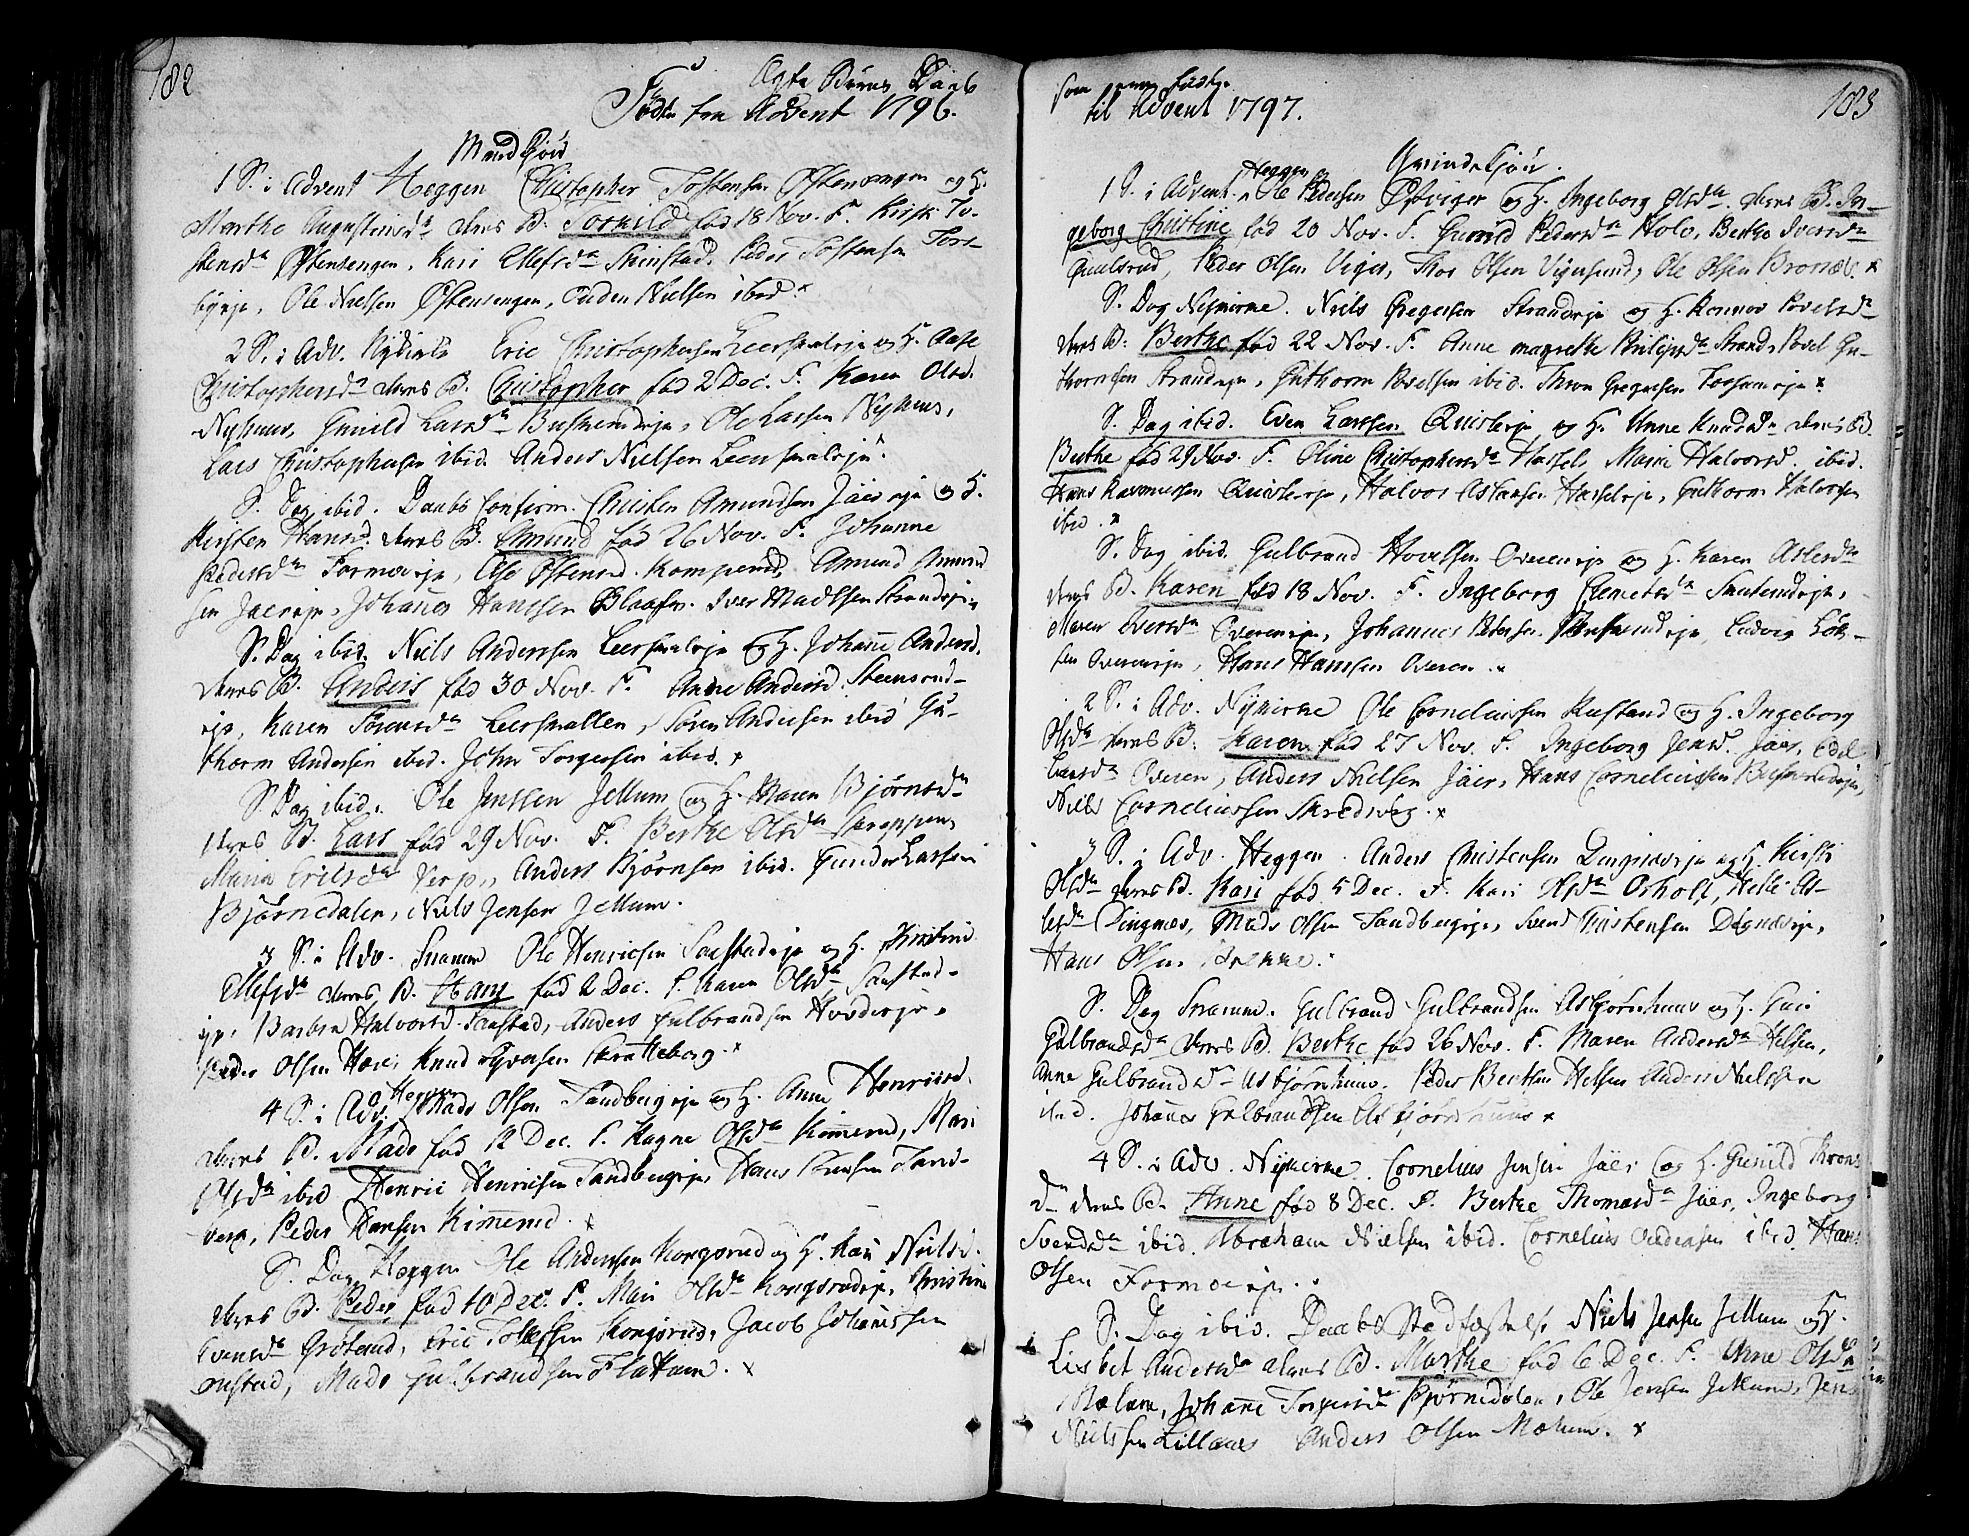 182
Ægte Børns Daab
Fødte fra Advent 1796.
Mandkjøn
1 S. i Advent Heggen Christopher Tostensen Østensengen og H.
Marthe Augustinsd. deres B. Torkild fød 18 Nov. F. Kirsti To-
stensd. Østensengen, Kari Ellefsd. Skinstad, Peder Tostensen
Ole Nielsen Østensengen, Auden Nielsen ibid.
2 S. i Adv. Eric Christophersen Leersmaleje og H. Aase
Christophersd. deres B. Christopher fød 2 Dec. F. Karen Olsd.
Nyhuus, Gunild Larsd. Buskerudeje, Ole Larsen Nyhuus,
Lars Christophersen ibid. Anders Nielsen Leersmaleje.
S. Dag ibid. Daabs Confirm. Christen Amundsen Jäereje og H.
Kirsten Hansd. deres B. Amund fød 26 Nov. F. Johanne
Pedersd. Formoeje, Østensd. Komperud, Amund Amund
sen Jaereje, Johanes Hanssen Blaafar. Iver Madssen Strandeje,
S. Dag ibid. Niels Anderssen Leersmaleje og H. Johane Andersd.
deres B. Anders fød 30 Nov. F. Anne Andersd. Steensrud-
eje, Karen Sørensd. Leersmallen, Søren Andersen ibid Gu-
thorm Andersen ibid. John Torgersen ibid.
S. Dag ibid. Ole Jenssen Jellum og H. Maren Bjørnsd.
deres B. Lars fød 29 Nov. F. Berthe Olsd. Skreppen,
Maria Erichsd. Verp, Anders Bjørnsen ibid. Gunder Larssen
Bjørnedalen, Niels Jensen Jellum.
3 S. i Adv. Snarum Ole Henricsen Saastadeje og H. Kirstine
Ellefsd. deres B. Hans fød 2 Dec. F. Karen Olsd. Saastad-
eje, Barbra Halvorsd. Saastad, Anders Gulbrandsen Hovdeeje,
Peder Olsen Hære, Knud Syversen Skralleborg.
4 S. i Adv. Heggen Mads Olsen Sandbergeje og H. Anne Henricsd.
deres B. Mads fød 12 Dec. F. Ragne Olsd. Kimerud, Mari
Olsd. ibid Henric Henricsen Sandbergeje, Hans Sand-
Peder Hansen Kimerud.
S. Dag Heggen Ole Andersen Kongsrud og H. Kari Nielsd.
deres B. Peder fød 10 Dec. F. Mari Olsd. Kongsrudeje, Christine
Svensd. Grøtrud, Eric Tollefsen Kongsrud, Jacob Johanssen
Mads Gulbrandsen Flattum.
som ere fødte
til Advent 1797.
183
Qvindekjøn.
1 S. i Advent Heggen Ole Pedersen Østviger og H. Ingeborg Olsd. deres B. In-
geborg Christine fød 20 Nov. F. Gunild Pedersd. Holv, Berthe Iversd.
Peder Olsen Viger, Thor Olsen Vigersund, Ole Olsen
S. Dag Nykirke. Niels Gregersen Strandeje og H. Ronnov Povelsd.
deres B. Berthe fød 22 Nov. F. Anne Magrethe Philipsd. Strand, Povel Gu-
thormsen Strandeje, Guthorm Povelsen ibid. Thron Gregersen
S. Dag ibid. Even Larssen Qvisleeje og H. Anne Knudsd. deres B.
Berthe fød 29 Nov. F. Oline Christophersd. Hassel, Marie Halvorsd. ibid.
Hans Rasmussen Qvisleeje, Halvor Aslaksen Hasseleje, Guthorm Halvorsen
ibid.
S. Dag ibid. Gulbrand Hovelsen Overeneje og H. Karen Aslesd.
deres B. Karen fød 18 Nov. F. Ingeborg Clemetsd. Skuterudeje,
Maren Iversd. Overeneje, Johannes Pedersen Ludvig
sen Overeneje, Hans Hansen Overen.
2 S. i Adv. Nykirke Ole Corneliussen Rustand og H. Ingeborg
Olsd. deres B. Karen fød 27 Nov. F. Ingeborg Jensd. Jäer, Edel
Larsd. Overen, Anders Nielsen Jäer, Hans Corneliussen Buskerudeje,
Niels Corneliussen Skredsvig.
3 S. i Adv. Heggen. Anders Christensen Dingnæseje og H. Kirsti
Olsd. deres B. Kari fød 5 Dec. F. Kari Olsd. Orholt, Helle As-
lesd. Dingnæs, Mads Olsen Sandbergeje, Svend Christensen Dignæseje,
Hans Olsen Brenne.
S. Dag Snarum. Gulbrand Gulbrandsen Asbjørnhuus og H. Guri
Gulbrandsd. deres B. Berthe fød 26 Nov. F. Maren Andersd. Helsen,
Anne Gulbrandsd. Asbjørnhuus. Peder Bertsen Helsen Anders Nielssen
ibid. Johanes Gulbrandssen Asbjørnhuus
4 S. i Adv. Nykirke. Cornelius Jensen Jäer og H. Gunild Throns
d. deres B. Anne fød 8 Dec. F. Berthe Thomasd. Jäer, Ingeborg
Svendsd. ibid. Abraham Nielsen ibid. Cornelius Andersen ibid. Hans
Olsen Formoeje.
S. Dag ibid. Daabs Stadfæstelse Niels Jensen Jellum og H.
Lisbet Andersd. deres B. Marthe fød 6 Dec. F. Anne Olsd.
Mælum, Johane Torgersd. Bjørnedalen, Ole Jensen Jellum, Jens
Nielssen Lillaaes Anders Olsen Mælum.